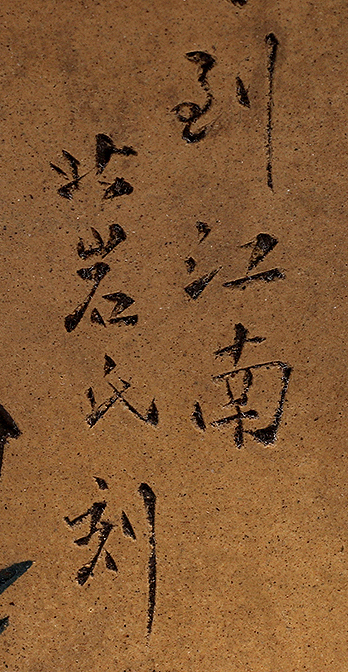 到江南
北岩氏刻